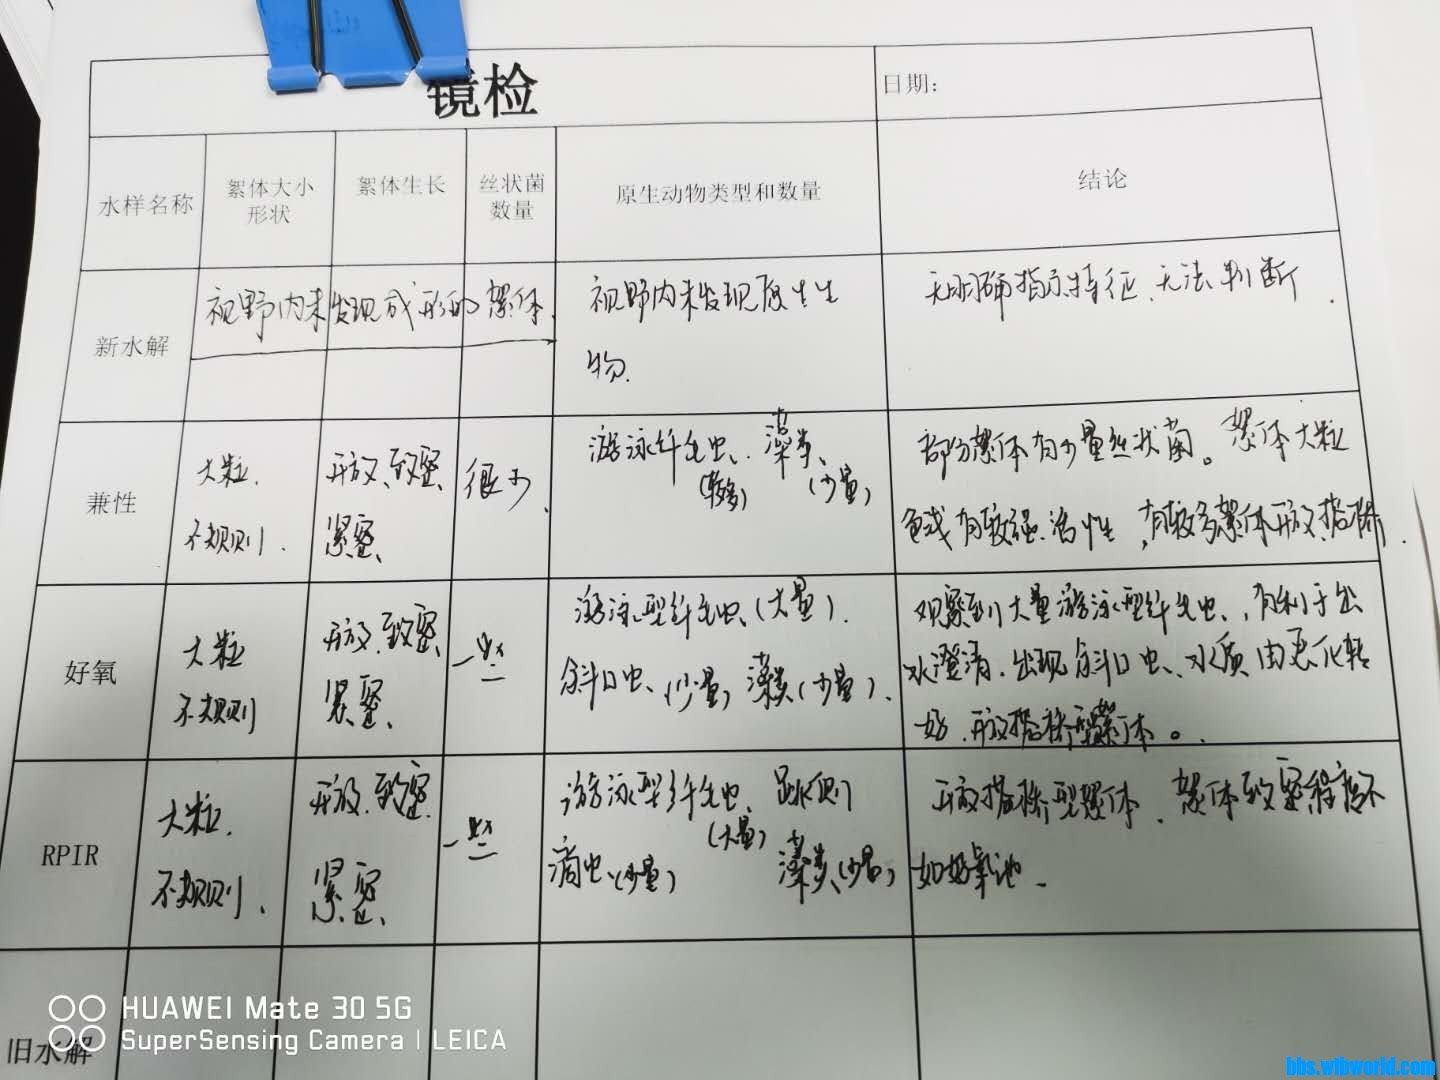 镜检
日期：
水样名称
絮体大小
形状
絮体生长
丝状菌
数量
原生动物类型和数量
结论
新水解
视野内未发现成形的絮体.
视野内未发现原生生
物.
无明确指示特征、无法判断.
兼性
大粒.
不规则.
开放、致密、
紧密、
很少、
游泳纤毛虫、藻类、
(较多) (少量)
部分絮体有少量丝状菌。絮体大粒
色浅有较强活性，有较多絮体开放、搭桥.
好氧
大粒
不规则
开放、致密、
紧密、
一些
游泳型纤毛虫、(大量).
斜口虫、(少量) 藻类(少量).
观察到大量游泳型纤毛虫、有利于出
水澄清. 出现斜口虫、水质由恶化转
好.开放搭桥型絮体。
RPIR
大粒.
不规则、
开放.致密.
紧密、
一些
游泳型纤毛虫、跳侧
(大量)
滴虫、(少量) 藻类、(少量)
开放搭桥型絮体.絮体致密程度不
如好氧池.
旧水解
HUAWEI Mate 30 5G
SuperSensing Camera | LEICA
bbs.wtbworld.com